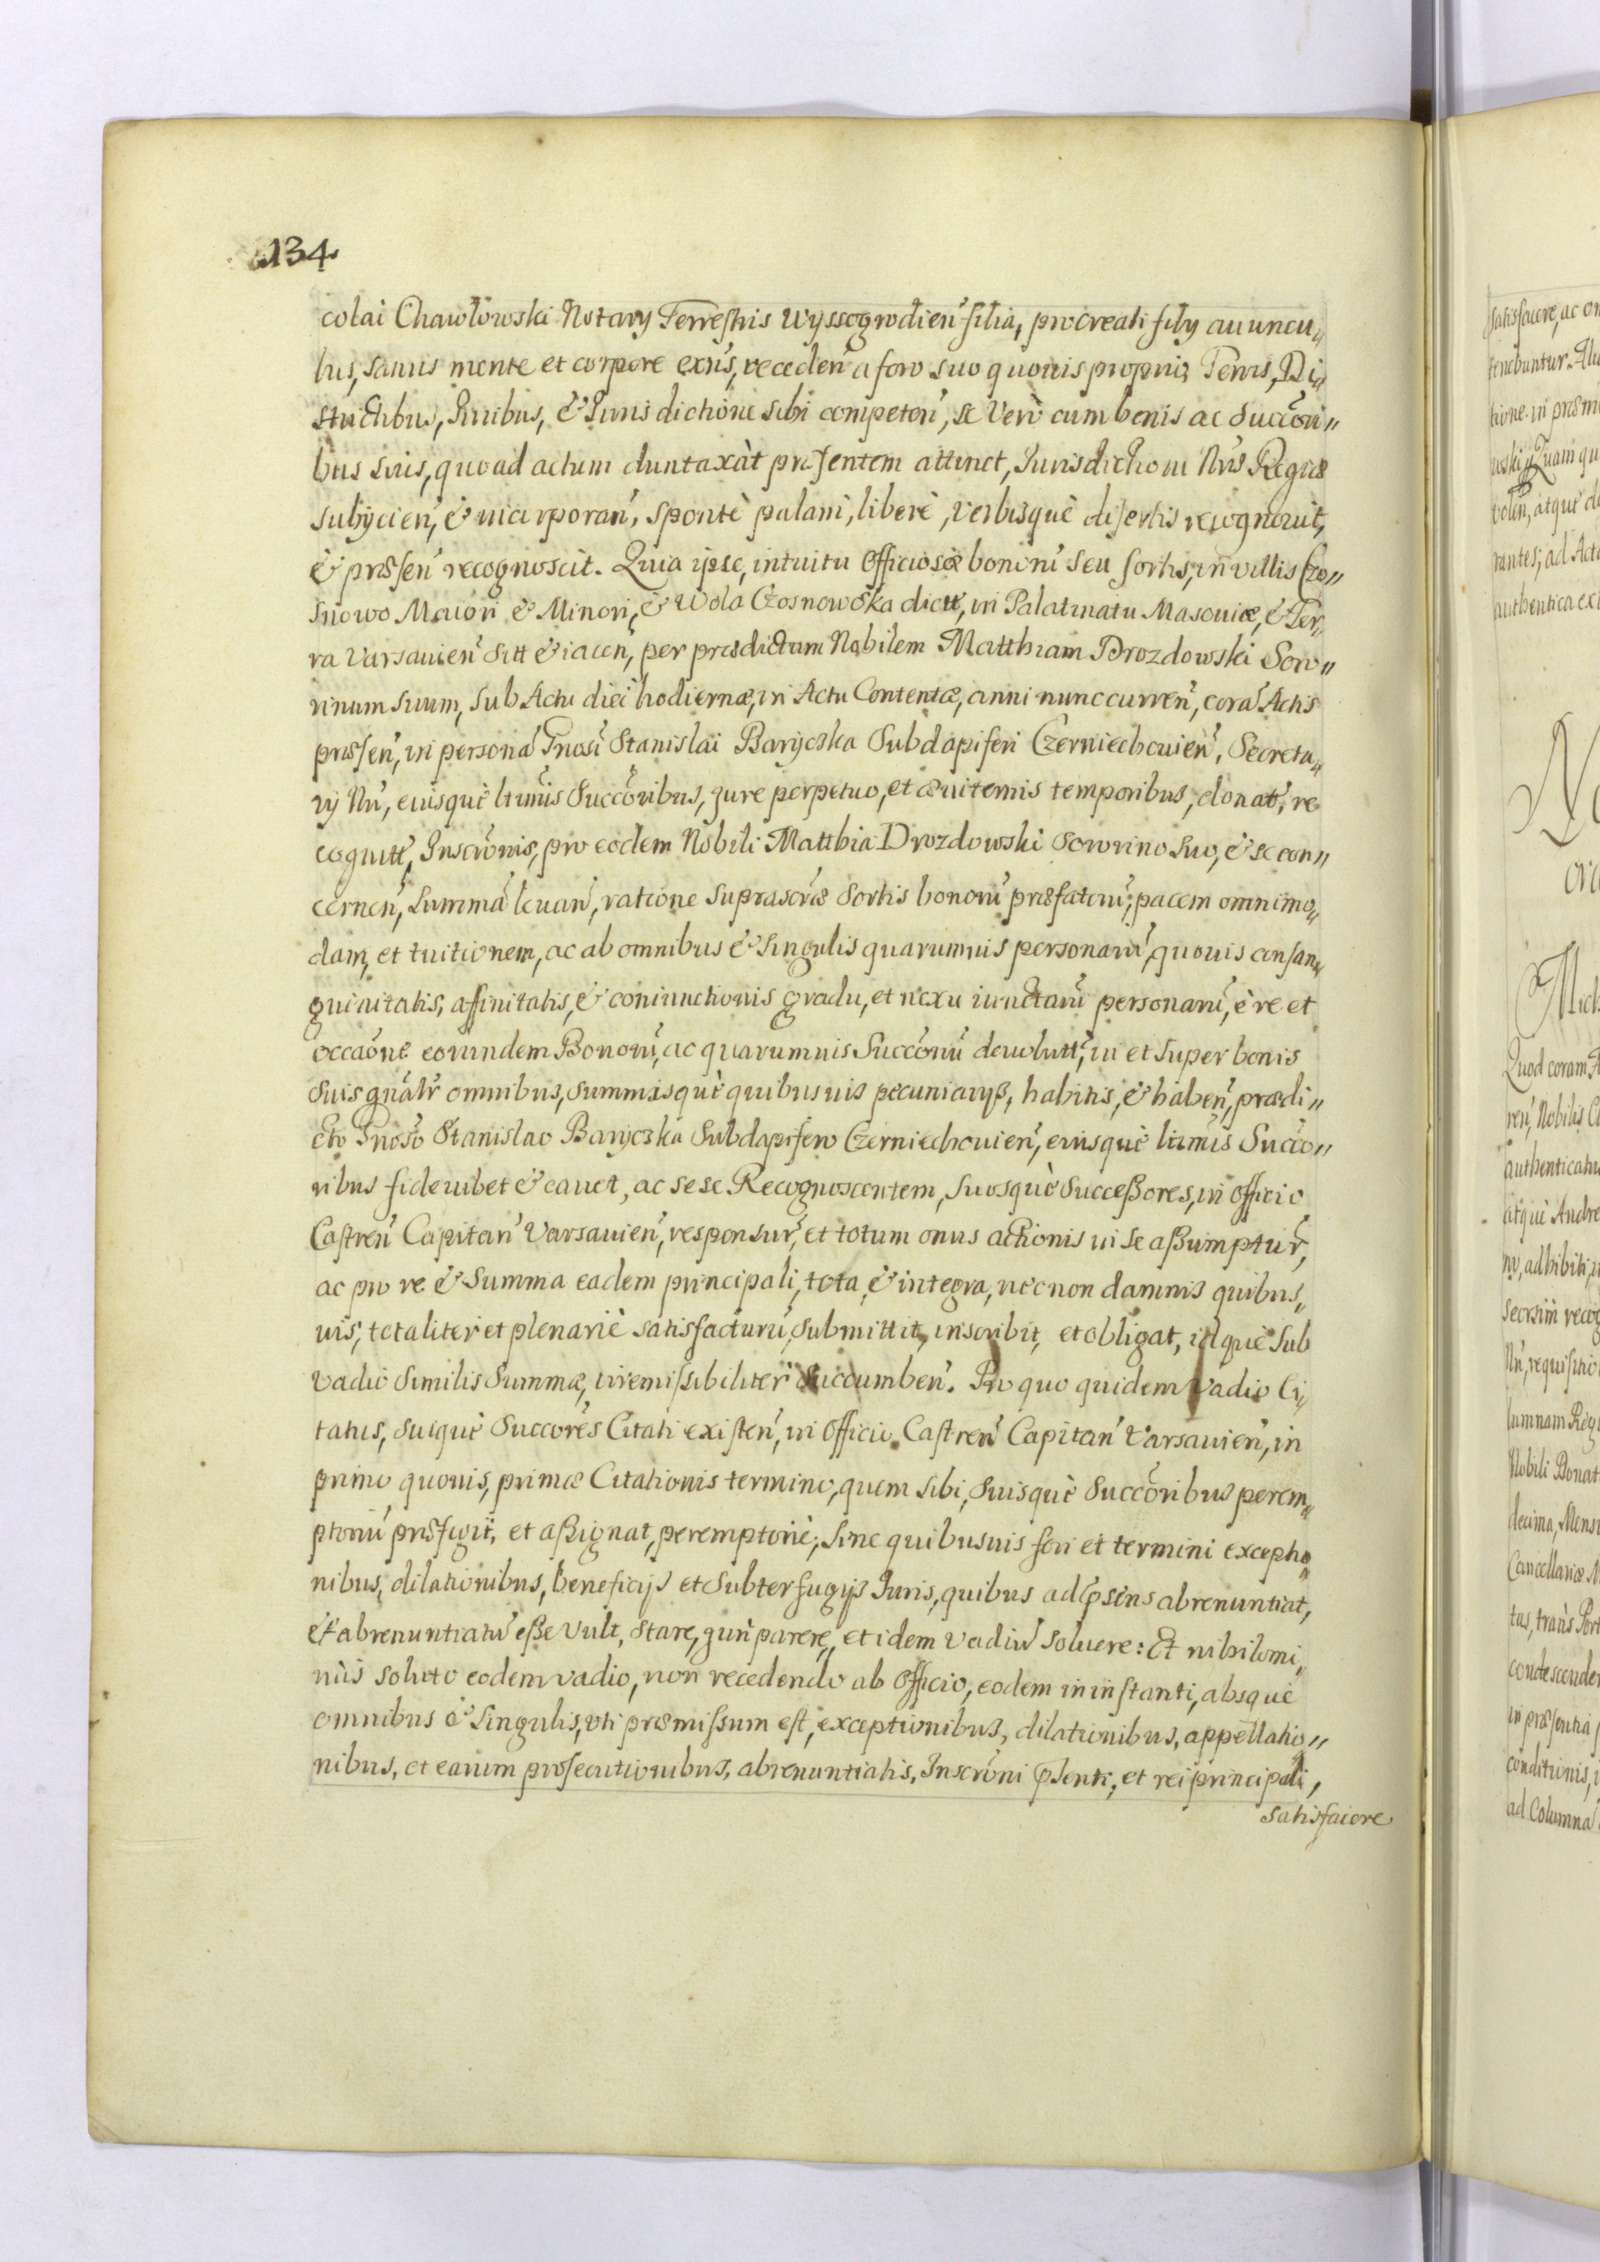 134
colai Chawłowski Notarÿ Terrestris Wyssogrodien̄ filia, procreati filÿ auuncu„
lus, sanus mente et corpore exñs, receden̄ a foro suo quouis proprio, Terris, Di„
strictibus, Juribus, & Jurisdictione sibi competen̄, se verò cum bonis ac Succōri„
bus suis, quoad actum duntaxàt præsentem attinet, Jurisdictioni Nr̄is Regiæ
subÿcien̄, & incorporan̄, spontè palam, liberè, verbisquè disertis recognouit,
& præsen̄ recognoscit. Quia ipse, intuitu Officiosæ bonorū seu sortis, in villis Czo„
snowo Maiori & Minori, & Wola Czosnowska dictt, in Palatinatu Masouiæ, & Ter„
ra Varsauien̄ sitt & iacen̄, per prædictum Nobilem Matthiam Drozdowski Soro„
rinum suum, sub Actu diei hodiernæ, in Actu Contentæ, anni nunc curren̄, corā Actis
præsen̄, in personā Gnosi Stanislai Barÿczka Subdapiferi Czerniechouien̄, Secreta„
rÿ Nr̄i, eiusquè ltimis Succōribus, jure perpetuo, et æuiternis temporibus, donat, re
cognitt, Inscrōnis, pro eodem Nobili Matthia Drozdowski Sororino suo, & se con„
cernen̄, summā leuan̄, ratione suprascrā̄æ sortis bonorū præfatorū, pacem omnimo„
dam, et tuitionem, ac ab omnibus & singulis quarumuis personarū, quouis consan„
guinitatis, affinitatis, & coniunctionis gradu, et nexu iunctarū personarū, è re et
occaōne eorundem Bonorū, ac quarumuis Succōnū deuolutt, in et super bonis
suis gnālr̄ omnibus, summisquè quibusuis pecuniarÿs, habitis, & haben̄, prædi„
cto Gnoso Stanislao Barÿczka Subdapifero Czerniechouien̄, eiusquè ltimis Succo„
ribus fideiubet & cauet, ac sese Recognoscentem, suosquè Successores, in Officio
Castren̄ Capitan̄ Varsauien̄, responsur̄, et totum onus actionis in se assumptur̄,
ac pro re & summa eadem principali, tota, & integra, necnon damnis quibus„
uis, totaliter et plenariè satisfacturū, submittit, inscribit, et obligat, idquè sub
vadio similis Summæ, irremissibiliter succumben̄. Pro quo quidem vadio Ci„
tatus, suiquè Succorēs Citati existen̄, in Officio Castren̄ Capitan̄ Varsauien̄, in
primo quouis, primæ Citationis termino, quem sibi, suisquè Succōribus perem„
ptoriū præfigit, et assignat, peremptoriè, sine quibusuis fori et termini exceptio„
nibus, dilationibus, beneficijs et subterfugÿs Juris, quibus ad p̄sens abrenuntiat,
& abrenuntiatū esse vult, stare, juri parere, et idem vadiū soluere: Et nihilomi„
nùs soluto eodem vadio, non recedendo ab Officio, eodem in instanti, absquè
omnibus & singulis, vti præmissum est, exceptionibus, dilationibus, appellatio„
nibus, et earum prosecutionibus, abrenuntiatis, Inscrōni p̄senti, et rei principali,
satisfacere